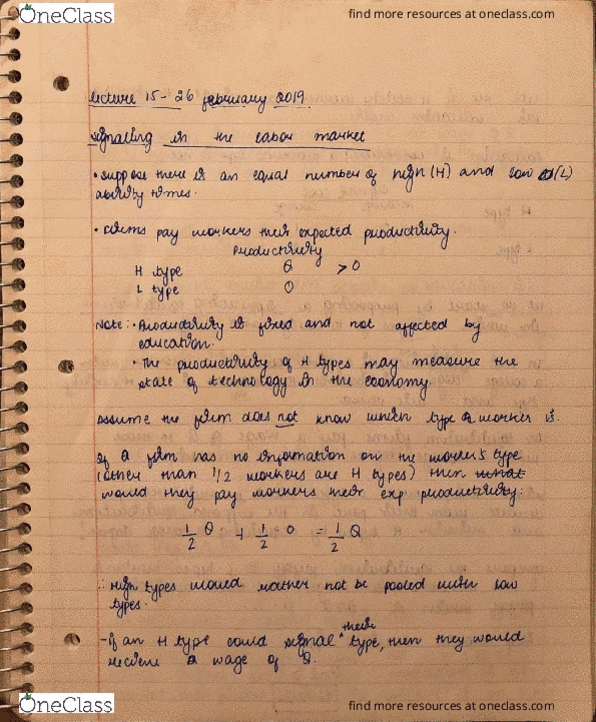 OneClass
find more resources at oneclass.com
lecture 15 - 26 february 2019
signalling in the labor market
• suppose there is an equal number of high (H) and low (L)
ability times.
• firms pay workers their expected productivity.
Productivity
H type θ > 0
L type 0
Note: • Productivity is fixed and not affected by
education.
• The productivity of H types may measure the
state of technology in the economy.
Assume the firm does not know which type a worker is.
If a firm has no information on the worker's type
(other than 1/2 workers are H types) then what
would they pay workers their exp productivity:
1/2 θ + 1/2 · 0 = 1/2 θ
∴ High types would rather not be pooled with low
types.
their
- if an H type could signal ^ type, then they would
receive a wage of θ.
OneClass
find more resources at oneclass.com